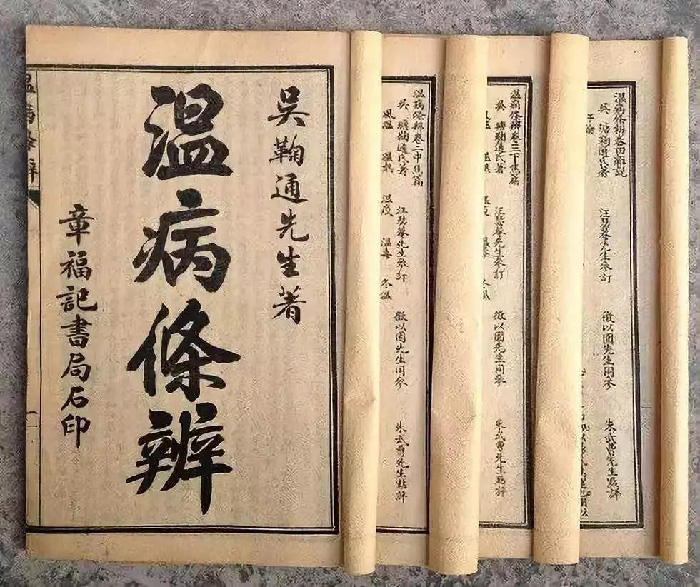 吳鞠通先生著
溫病條辨
章福記書局石印
溫病條辨卷二中焦篇
吳瑭鞠通氏著
汪瑟菴先生參訂
徵以園先生同參
朱武曹先生點評
風溫
溫熱
溫疫
溫毒
冬溫
溫病條辨卷三下焦篇
吳瑭鞠通氏著
汪瑟菴先生參訂
徵以園先生同參
朱武曹先生點評
溫病條辨卷四雜說
吳瑭鞠通氏著
汪瑟菴先生參訂
徵以園先生同參
朱武曹先生點評